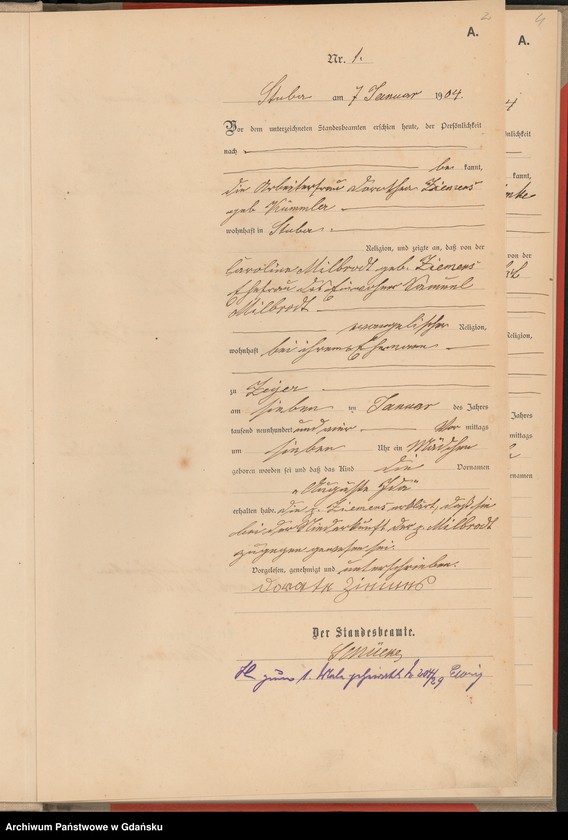 2
A.
Nr. 1.
Stuba am 7 Januar 1904.
Vor dem unterzeichneten Standesbeamten erschien heute, der Persönlichkeit
nach
be kannt,
die Arbeiterfrau Dorothea Ziemens
geb Kümmler
wohnhaft in Stuba
Religion, und zeigte an, daß von der
Caroline Milbrodt geb. Ziemens
Ehefrau des Samuel
Milbrodt
evangelischer Religion,
wohnhaft bei ihrem Ehemann
zu Zeyer
am sieben ten Januar des Jahres
tausend neunhundert und vier Vor mittags
um sieben Uhr ein Mädchen
geboren worden sei und daß das Kind die Vornamen
„Auguste Ida"
erhalten habe. die p. Ziemens erklärt, daß sie
bei der Niederkunft der p. Milbrodt
zugegen gewesen sei.
Vorgelesen, genehmigt und unterschrieben.
Der Standesbeamte.
zum 1. Male
4
A.
nlichkeit
kannt,
von der
Religion,
Jahres
mittags
rnamen
Archiwum Państwowe w Gdańsku